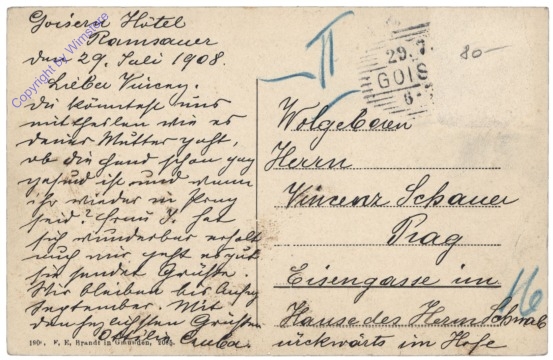 Goisern Hôtel
Ramsauer
den 29. Juli 1908.
Lieber Vincenz.
Du könntest uns
mittheilen wie es
deiner Mutter geht,
ob die Hand schon ganz
gesund ist und wann
ihr wieder in Prag
seid? Frau J. hat
sich wunderbar erholt
auch mir geht es gut
sie sendet Grüße.
Wir bleiben bis Anfang
September. Mit
den herzlichsten Grüßen
Ottilie
F. E. Brandt in Gmunden,
II
29.7
GOIS
6-
80-
Wolgeboren
Herrn
Vincenz Schauer
Prag
Eisengasse im
Hause des Herrn Schwab
rückwärts im Hofe
16
Copyright by Wimstore